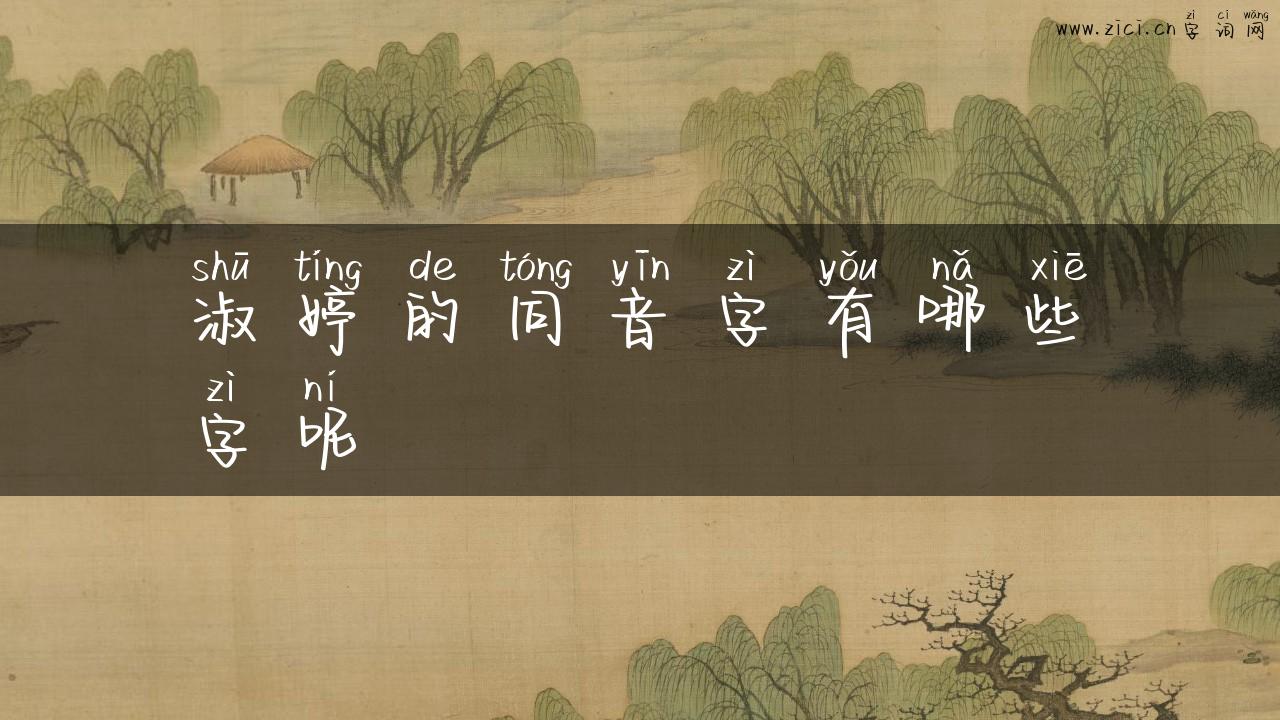 zì cí wǎng
www.zici.cn 字 词 网
shū tíng de tóng yīn zì yǒu nǎ xiē
淑 婷 的 同 音 字 有 哪 些
zì ní
字 呢